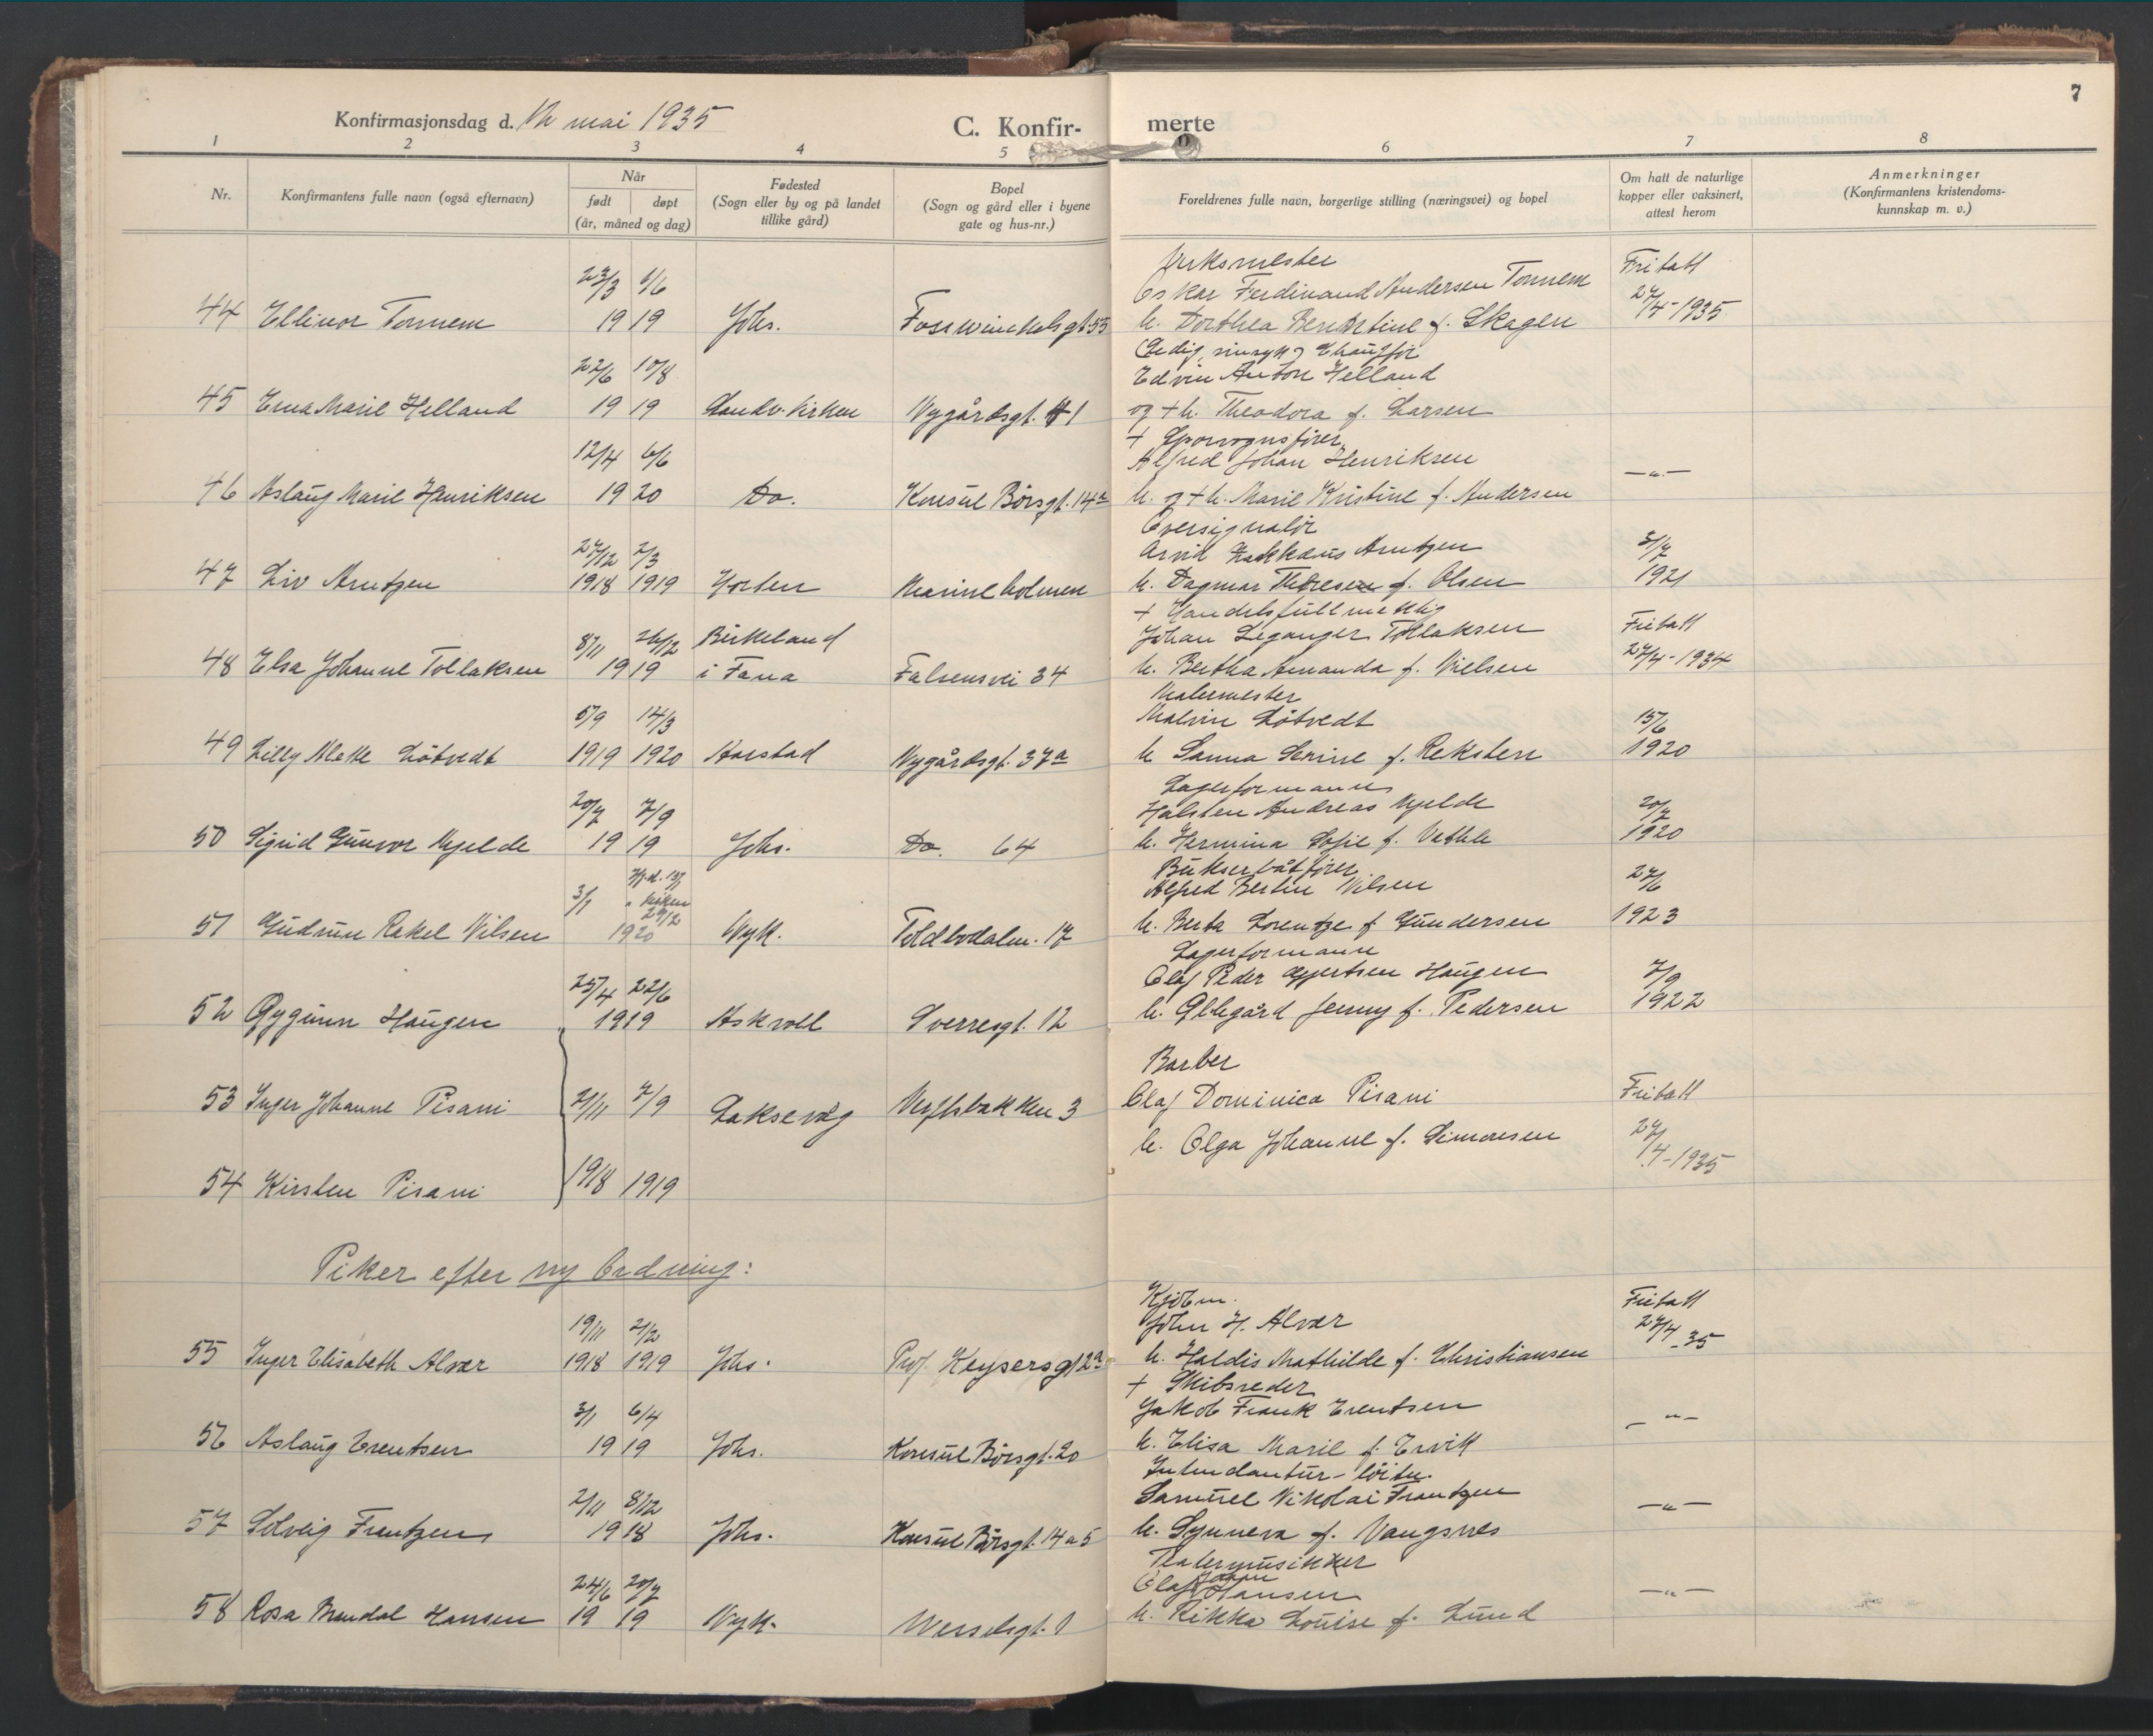 7
Konfirmasjonsdag d. 12 mai 1935
C. Konfirmerte
1 2 3 4 5 6 7 8
Nr.
Konfirmantens fulle navn (også efternavn)
Når
født døpt
(år, måned og dag)
Fødested
(Sogn eller by og på landet
tillike gård)
Bopel
(Sogn og gård eller i byene
gate og hus-nr.)
Foreldrenes fulle navn, borgerlige stilling (næringsvei) og bopel
Om hatt de naturlige
kopper eller vaksinert,
attest herom
Anmerkninger
(Konfirmantens kristendoms-
kunnskap m. v.)
23/3 1/6 Verksmester Fritatt
Oskar Ferdinand Andersen Tonnem 27/4-1935
44 Ellinor Tonnem 19 19 Johs. Fosswinckelsgt. 53 h. Dorthea Berntine f. Skagen
22/6 10/8 Edvin Anton Helland
45 Erna Marie Helland 19 19 Sandv. kirken Nygårdsgt. 1 og + h. Theodora f. Larsen
+ Sporvognsfører
12/4 6/6 Alfred Johan Henriksen —„—
46 Aslaug Marie Henriksen 19 20 Do. Konsul Børsgt. 14a h. og + h. Marie Kristine f. Andersen
Oversignalør
27/12 2/3 Arvid Arntzen
47 Liv Arntzen 1918 1919 Horten Marineholmen h. Dagmar Therese f. Olsen 1921
+ Handelsfullmektig
8/11 26/12 Birkeland Johan Leganger Tollaksen Fritatt
48 Elsa Johanne Tollaksen 19 19 i Fana Falsensvei 34 h. Bertha Amanda f. Nielsen 27/4-1934
Malermester
5/9 14/3 Malvin Løtvedt 15/6
49 Lilly Alette Løtvedt 1919 1920 Harstad Nygårdsgt. 37a h. Sanna Serine f. Reksten 1920
Lagerformann
20/7 7/9 Halsten Andreas Mjelde 20/7
50 Sigrid Gunvor Mjelde 19 19 Johs. Do. 64 h. Hermina Sofie f. Vethle 1920
Bukserbåtfører
3/1 kirken 29/2 Alfred Bertin Nilsen 27/6
51 Gudrun Rakel Nilsen 1920 Nyk. Toldbodalm. 17 h. Berta Lorentze f. Gundersen 1923
Lagerformann
25/4 22/6 Olaf Peder Gjertsen Haugen 7/9
52 Gygunn Haugen 1919 Askvoll Sverresgt. 12 h. Ablegård Jenny f. Pedersen 1922
Barber
53 Inger Johanne Pisani 2/11 7/9 Laksevåg Verftsbakken 3 Olaf Dominica Pisani Fritatt
h. Olga Johanne f. Simonsen 27/4-1935
54 Kirsten Pisani 1918 1919
Piker efter ny Ordning:
Kjøbm. Fritatt
19/11 2/2 John H. Alvær 27/4-35
55 Inger Elisabeth Alvær 1918 1919 Johs. Prof. Keysersgt 2a h. Haldis Mathilde f. Christiansen
+ Skibsreder
3/1 6/4 Jakob Frank Erentsen —„—
56 Aslaug Erentsen 19 19 Johs. Konsul Børsgt. 20 h. Elisa Marie f. Ervik
Intendantur-løitn.
2/11 8/12 Samuel Nikolai Frantzen —„—
57 Solveig Frantzen 19 18 Johs. Konsul Børsgt. 14 a 5 h. Synneva f. Vangsnes
Teatermusikker
24/6 20/7 Olaf Johan Hansen —„—
58 Rosa Brendal Hansen 19 19 Nyk. Wesselsgt. 1 h. Rikka Louise f. Lund